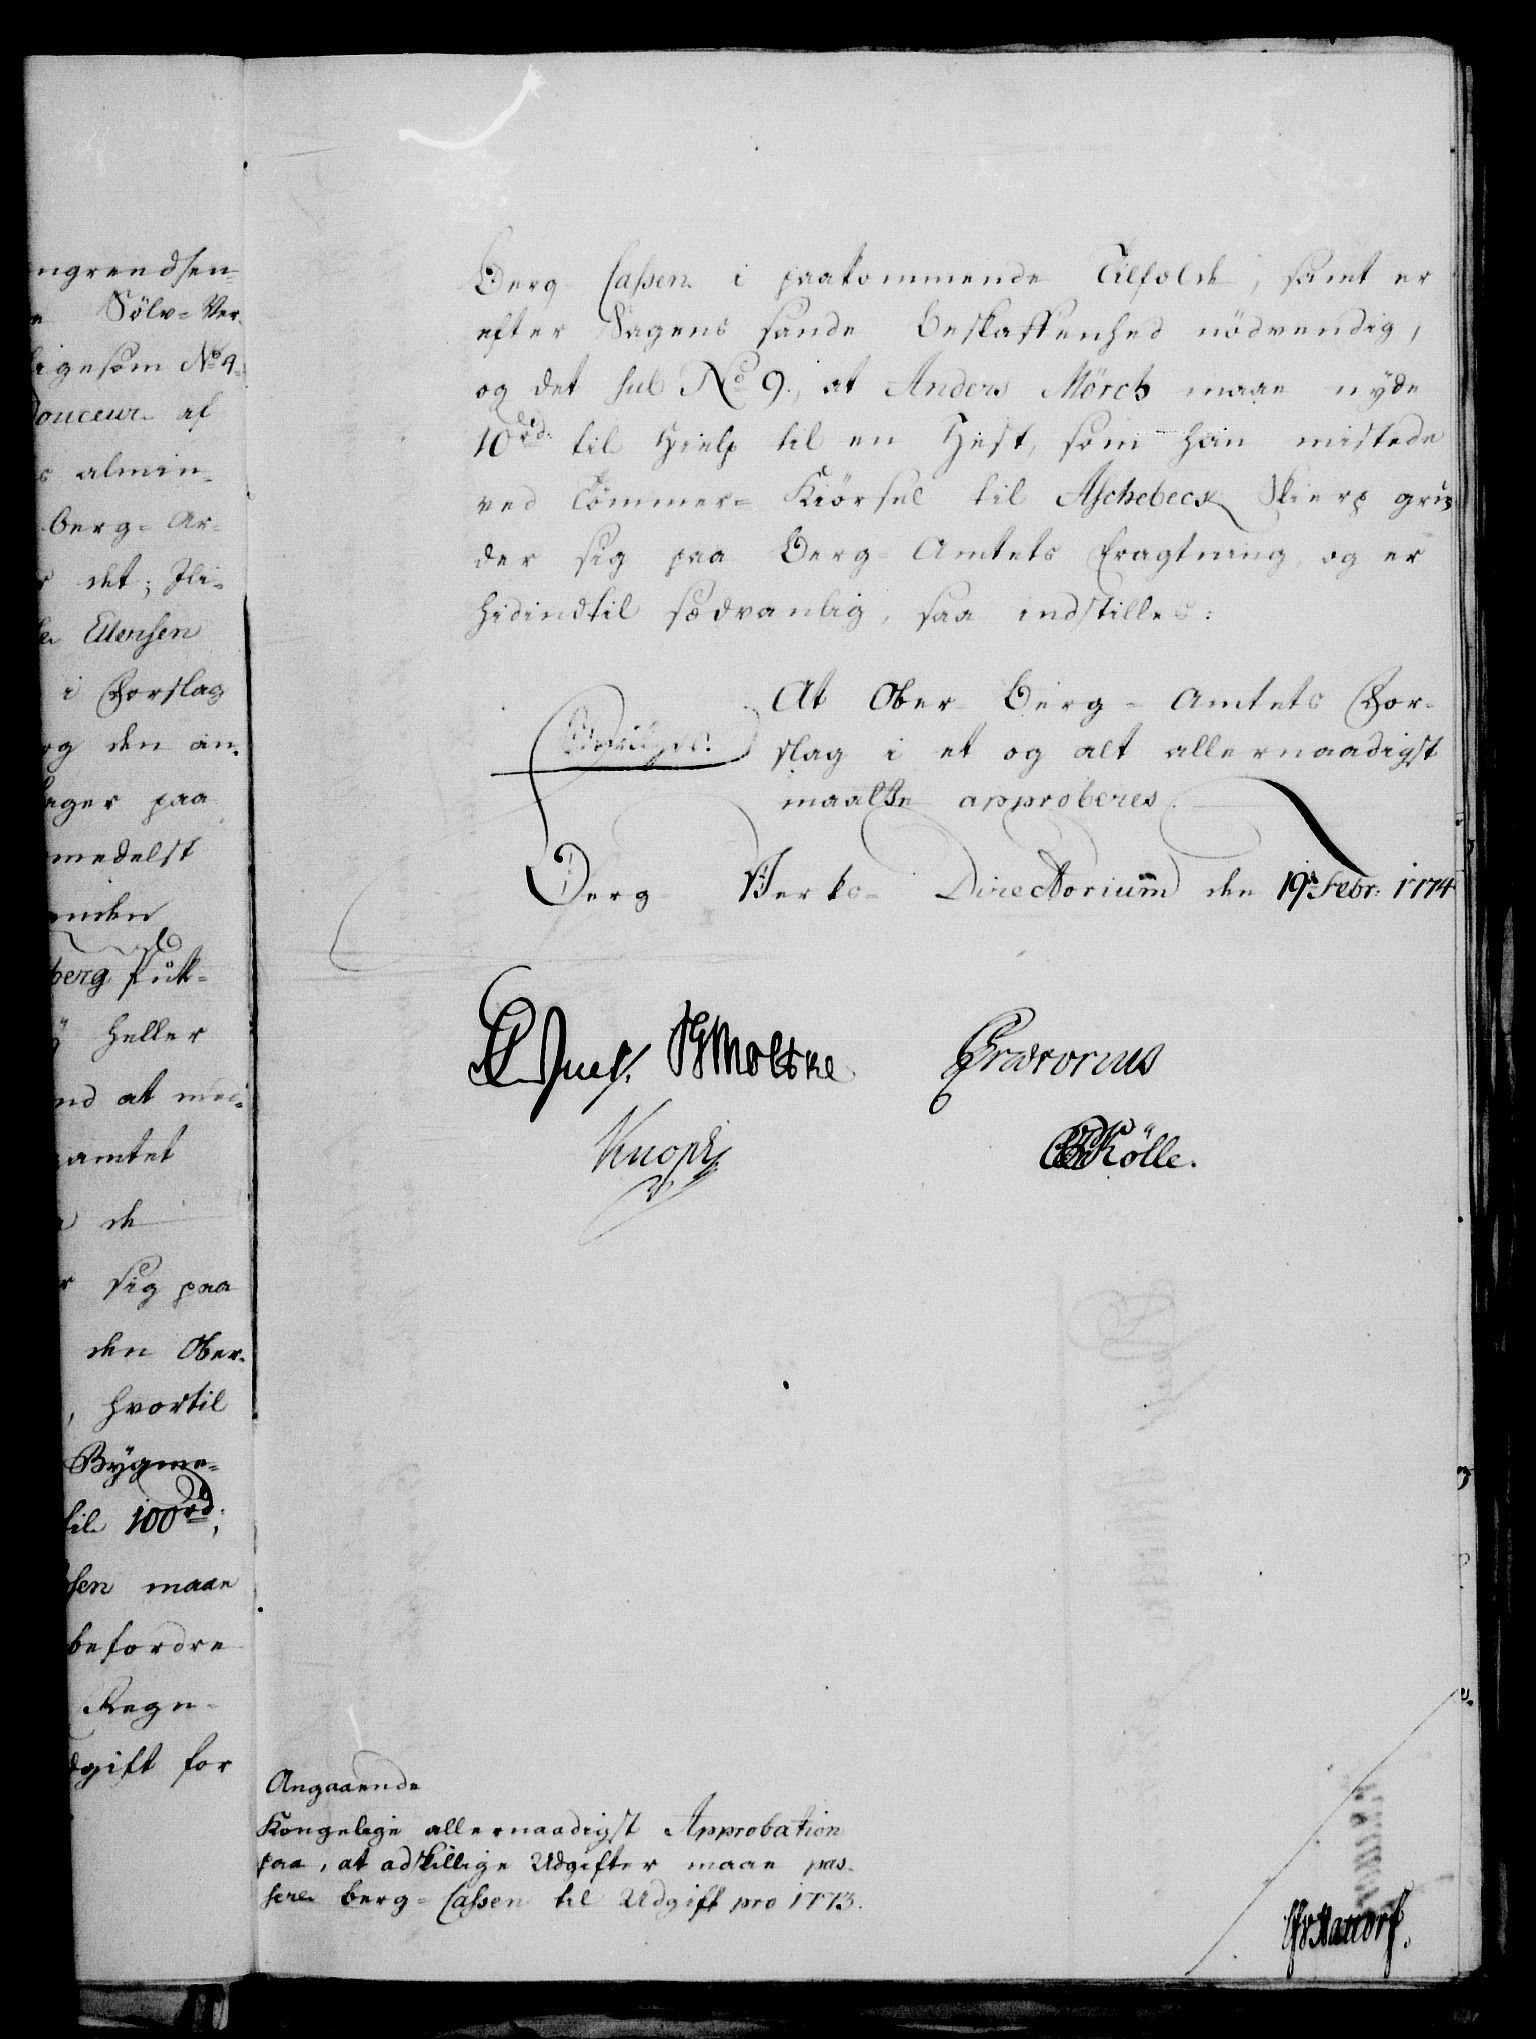 ngrendsen-
Sölv-Ver-
ligesom No 4.
Douceur af
almin-
Berg-Ar-
det; Ili-
Ellensen
i Forslag
og den an-
tager paa
medelst
enden
berg Puk-
heller
nd at med-
amtet
de
sig paa
den Ober-
, hvortil
Bÿgme-
til 100 rd,
sen maae
befordre
Regn-
dgift for
Berg-Cassen i paakommende Tilfelde, samt er
efter Sagens sande Beskaffenhed nödvendig,
og det sub No 9., at Anders Mörch maae nÿde
10 rd. til Hielp til en Hest, som han mistede
ved Tömmer-Kiörsel til Aschebeck Skierp grün-
der sig paa Berg-Amtets Eragtning, og er
hidindtil sædvanlig, saa indstilles:
At Ober-Berg-Amtets For-
slag i et og alt allernaadigst
maatte approberes.
Berg-Werks-Directorium den 19. Febr. 1774
Juel. Moltke Prætorius
Knoph Kölle.
Angaaende
Kongelige allernaadigst Approbation
paa, at adskillige Udgifter maae pas-
sere Berg-Cassen til Udgift pro 1773.